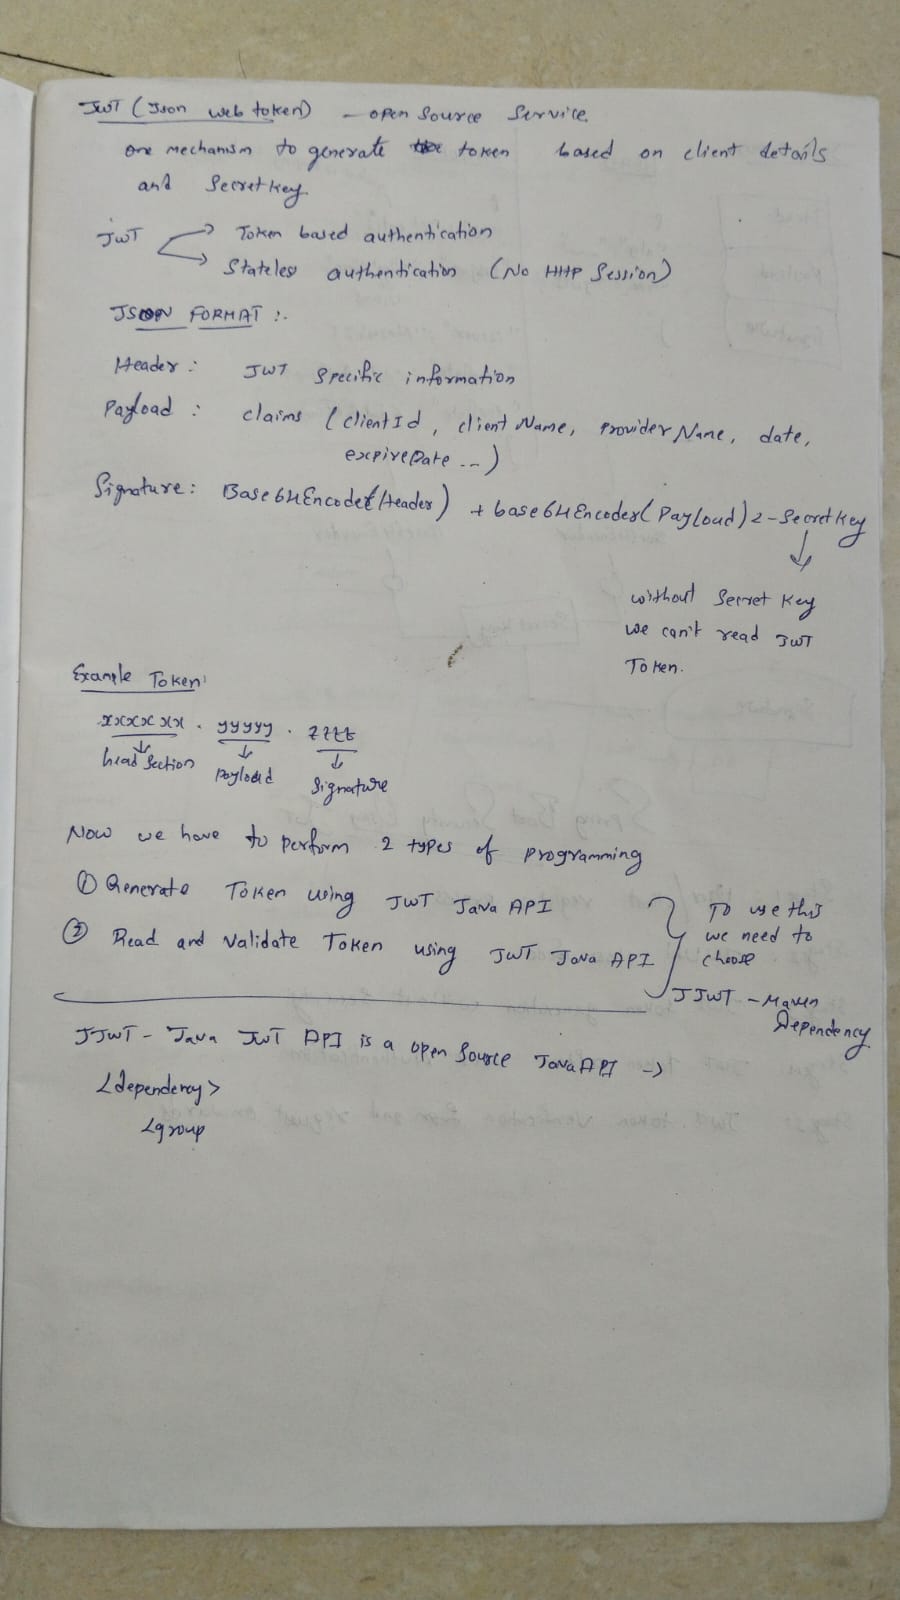 JWT (Json web token) - open Source Service
one mechanism to generate token based on client details
and Secretkey.
JWT → Token based authentication
→ Stateless authentication (No HTTP Session)
JSON FORMAT :-
Header : JWT Specific information
Payload : claims (clientId, client Name, provider Name, date,
expireDate ...)
Signature : Base64Encoder(Header) + base64Encoder(Payload) 2 - Secret key
↓
without Secret Key
we can't read JWT
Token.
Example Token:
xxxxxxx . yyyyy . zzzz
↓ ↓ ↓
head Section payload Signature
Now we have to perform 2 types of programming
① Generate Token using JWT Java API
② Read and Validate Token using JWT Java API
To use this
we need to
choose
JJWT - Maven
Dependency
JJWT - Java JWT API is a open Source Java API →
<dependency>
<group